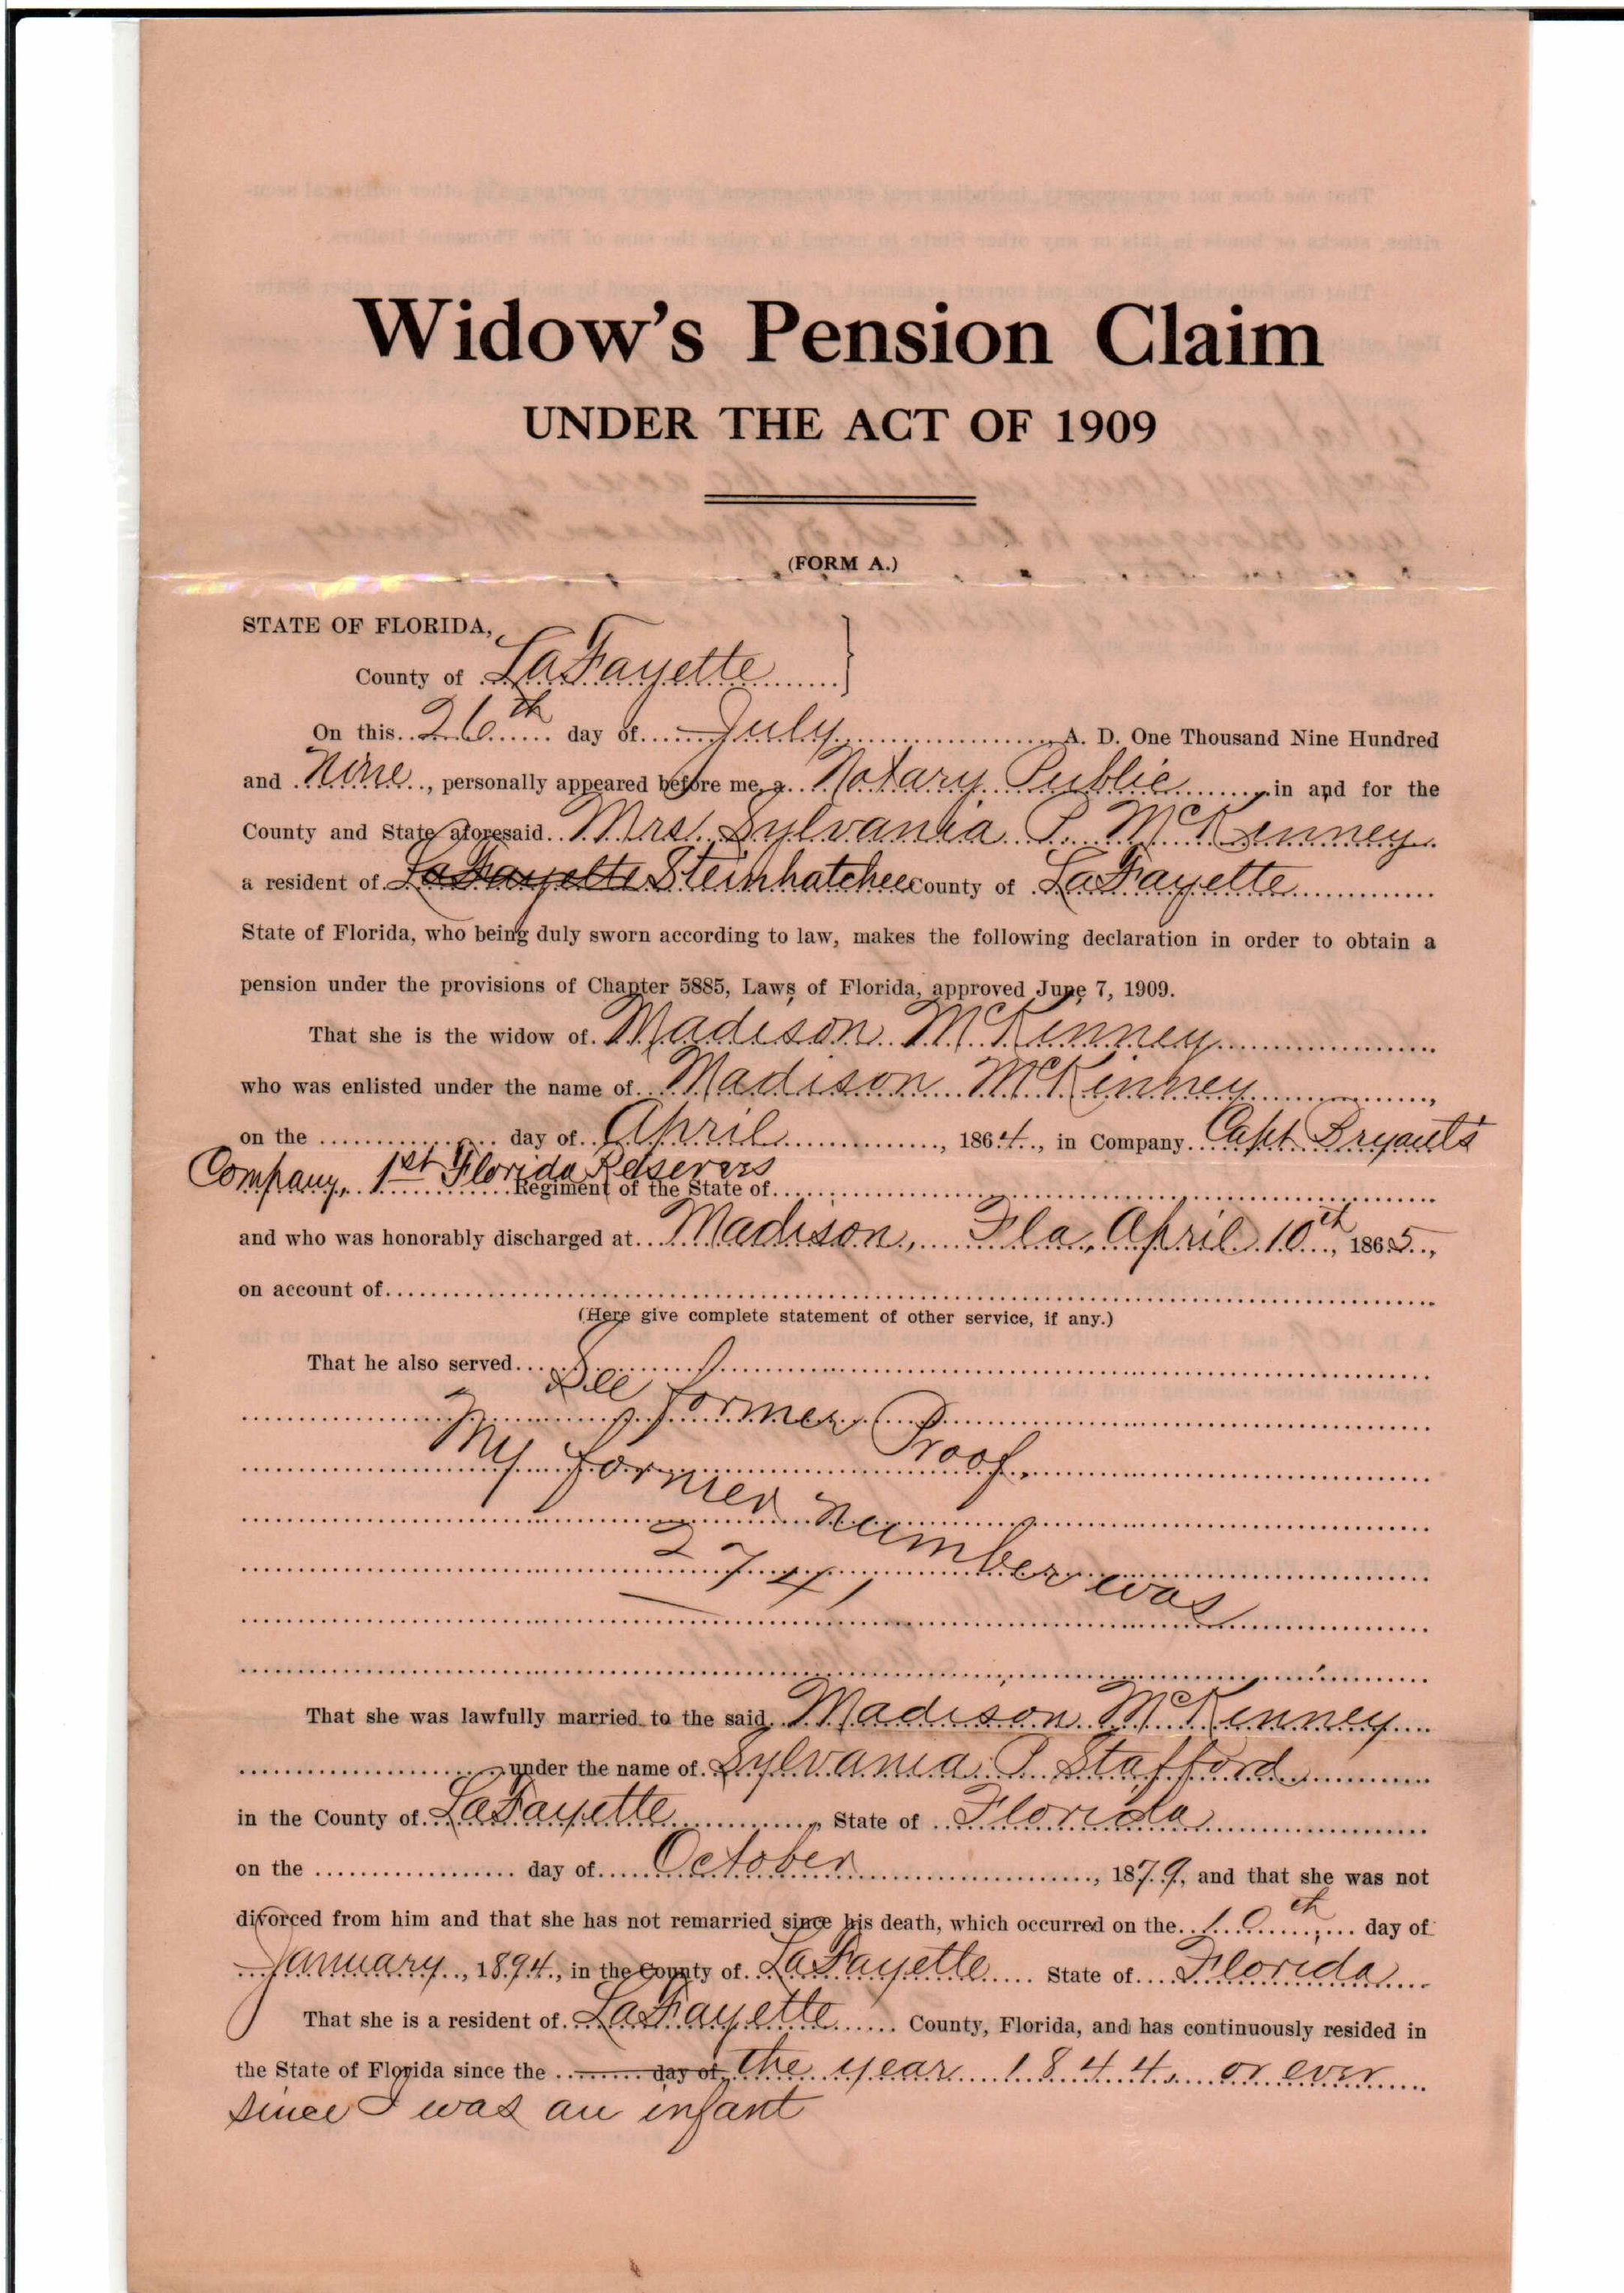 Widow's Pension Claim
UNDER THE ACT OF 1909
(FORM A.)
STATE OF FLORIDA,
County of LaFayette }
On this 26th day of July A. D. One Thousand Nine Hundred
and Nine, personally appeared before me, a Notary Public in and for the
County and State aforesaid Mrs. Sylvania P. McKinney
a resident of LaFayette Steinhatchee County of LaFayette
State of Florida, who being duly sworn according to law, makes the following declaration in order to obtain a
pension under the provisions of Chapter 5885, Laws of Florida, approved June 7, 1909.
That she is the widow of Madison McKinney
who was enlisted under the name of Madison McKinney,
on the day of April, 1864, in Company Capt. Bryant's
Company, 1st Florida Reservers Regiment of the State of
and who was honorably discharged at Madison, Fla, April 10th, 1865,
on account of
(Here give complete statement of other service, if any.)
That he also served
See former Proof.
My former number was
274
That she was lawfully married to the said Madison McKinney
under the name of Sylvania P. Stafford
in the County of LaFayette, State of Florida
on the day of October, 1879, and that she was not
divorced from him and that she has not remarried since his death, which occurred on the 10th day of
January, 1894, in the County of LaFayette State of Florida
That she is a resident of LaFayette County, Florida, and has continuously resided in
the State of Florida since the day of the year 1844 or ever
since I was an infant